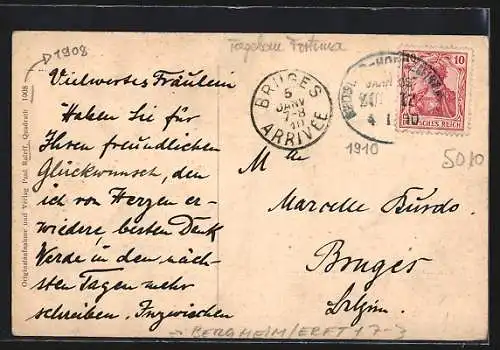 D 1908
Tagebau Fortuna
Vielwertes Fräulein
Haben Sie für
Ihren freundlichen
Glückwunsch, den
ich von Herzen er-
wiedere, besten Dank
Werde in den näch-
sten Tagen mehr
schreiben. Inzwischen
Originalaufnahme und Verlag Paul Quadrath 1908
BRUGES
5
JANV
7-8
ARRIVÉE
10
DEUTSCHES REICH
BAHNPOST
ZUG
4 1 10
1910
50/0
M
Marcelle Burdo.
Bruges
Belgien.
→ BERGHEIM/ERFT 17-3